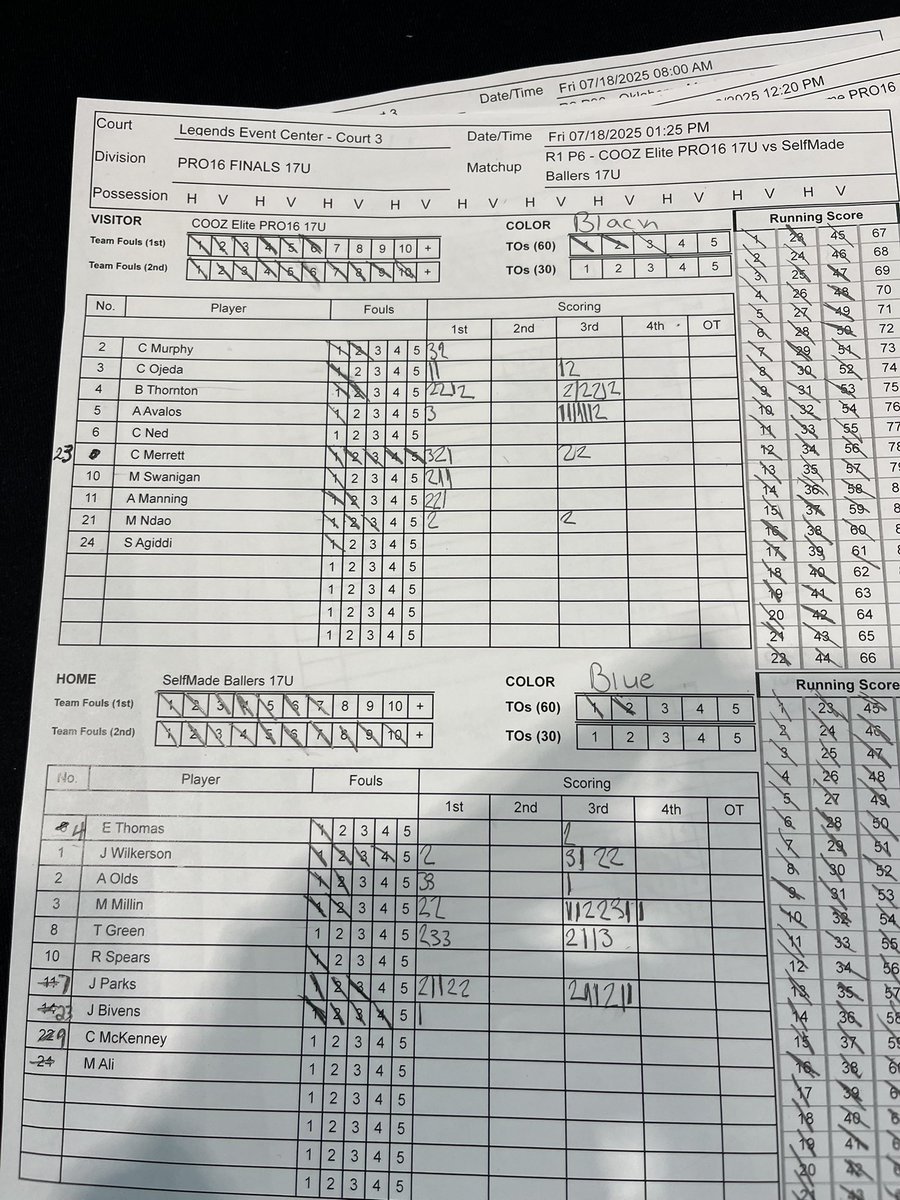 Date/Time Fri 07/18/2025 08:00 AM
/2025 12:20 PM
PRO16
Court Legends Event Center - Court 3 Date/Time Fri 07/18/2025 01:25 PM
Division PRO16 FINALS 17U Matchup R1 P6 - COOZ Elite PRO16 17U vs SelfMade
Ballers 17U
Possession H V H V H V H V H V H V H V H V H V
VISITOR COOZ Elite PRO16 17U COLOR Black Running Score
Team Fouls (1st) 1 2 3 4 5 6 7 8 9 10 + TOs (60) 1 2 3 4 5
Team Fouls (2nd) 1 2 3 4 5 6 7 8 9 10 + TOs (30) 1 2 3 4 5
No. Player Fouls Scoring
1st 2nd 3rd 4th OT
2 C Murphy 1 2 3 4 5 32
3 C Ojeda 1 2 3 4 5 11 12
4 B Thornton 1 2 3 4 5 2212 212212
5 A Avalos 1 2 3 4 5 3
6 C Ned 1 2 3 4 5
23 C Merrett 1 2 3 4 5 321 22
10 M Swanigan 1 2 3 4 5 211
11 A Manning 1 2 3 4 5 221
21 M Ndao 1 2 3 4 5 2 2
24 S Agiddi 1 2 3 4 5
1 2 3 4 5
1 2 3 4 5
1 2 3 4 5
1 2 3 4 5
1 23 45 67
2 24 46 68
3 25 47 69
4 26 48 70
5 27 49 71
6 28 50 72
7 29 51 73
8 30 52 74
9 31 53 75
10 32 54 76
11 33 55
12 34 56
13 35 57
14 36 58
15 37 59
16 38 60
17 39 61
18 40 62
19 41 63
20 42 64
21 43 65
22 44 66
HOME SelfMade Ballers 17U COLOR Blue Running Score
Team Fouls (1st) 1 2 3 4 5 6 7 8 9 10 + TOs (60) 1 2 3 4 5
Team Fouls (2nd) 1 2 3 4 5 6 7 8 9 10 + TOs (30) 1 2 3 4 5
No. Player Fouls Scoring
1st 2nd 3rd 4th OT
4 E Thomas 1 2 3 4 5
1 J Wilkerson 1 2 3 4 5 2 31 22
2 A Olds 1 2 3 4 5 33 1
3 M Millin 1 2 3 4 5 22
8 T Green 1 2 3 4 5 233 2113
10 R Spears 1 2 3 4 5
11 7 J Parks 1 2 3 4 5 21122 211211
14 23 J Bivens 1 2 3 4 5 1
22 9 C McKenney 1 2 3 4 5
24 M Ali 1 2 3 4 5
1 2 3 4 5
1 2 3 4 5
1 2 3 4 5
1 2 3 4 5
1 23 45
2 24 46
3 25 47
4 26 48
5 27 49
6 28 50
7 29 51
8 30 52
9 31 53
10 32 54
11 33 55
12 34 56
13 35 57
14 36 58
15 37
16 38
17 39
18 40
19 41
20 42